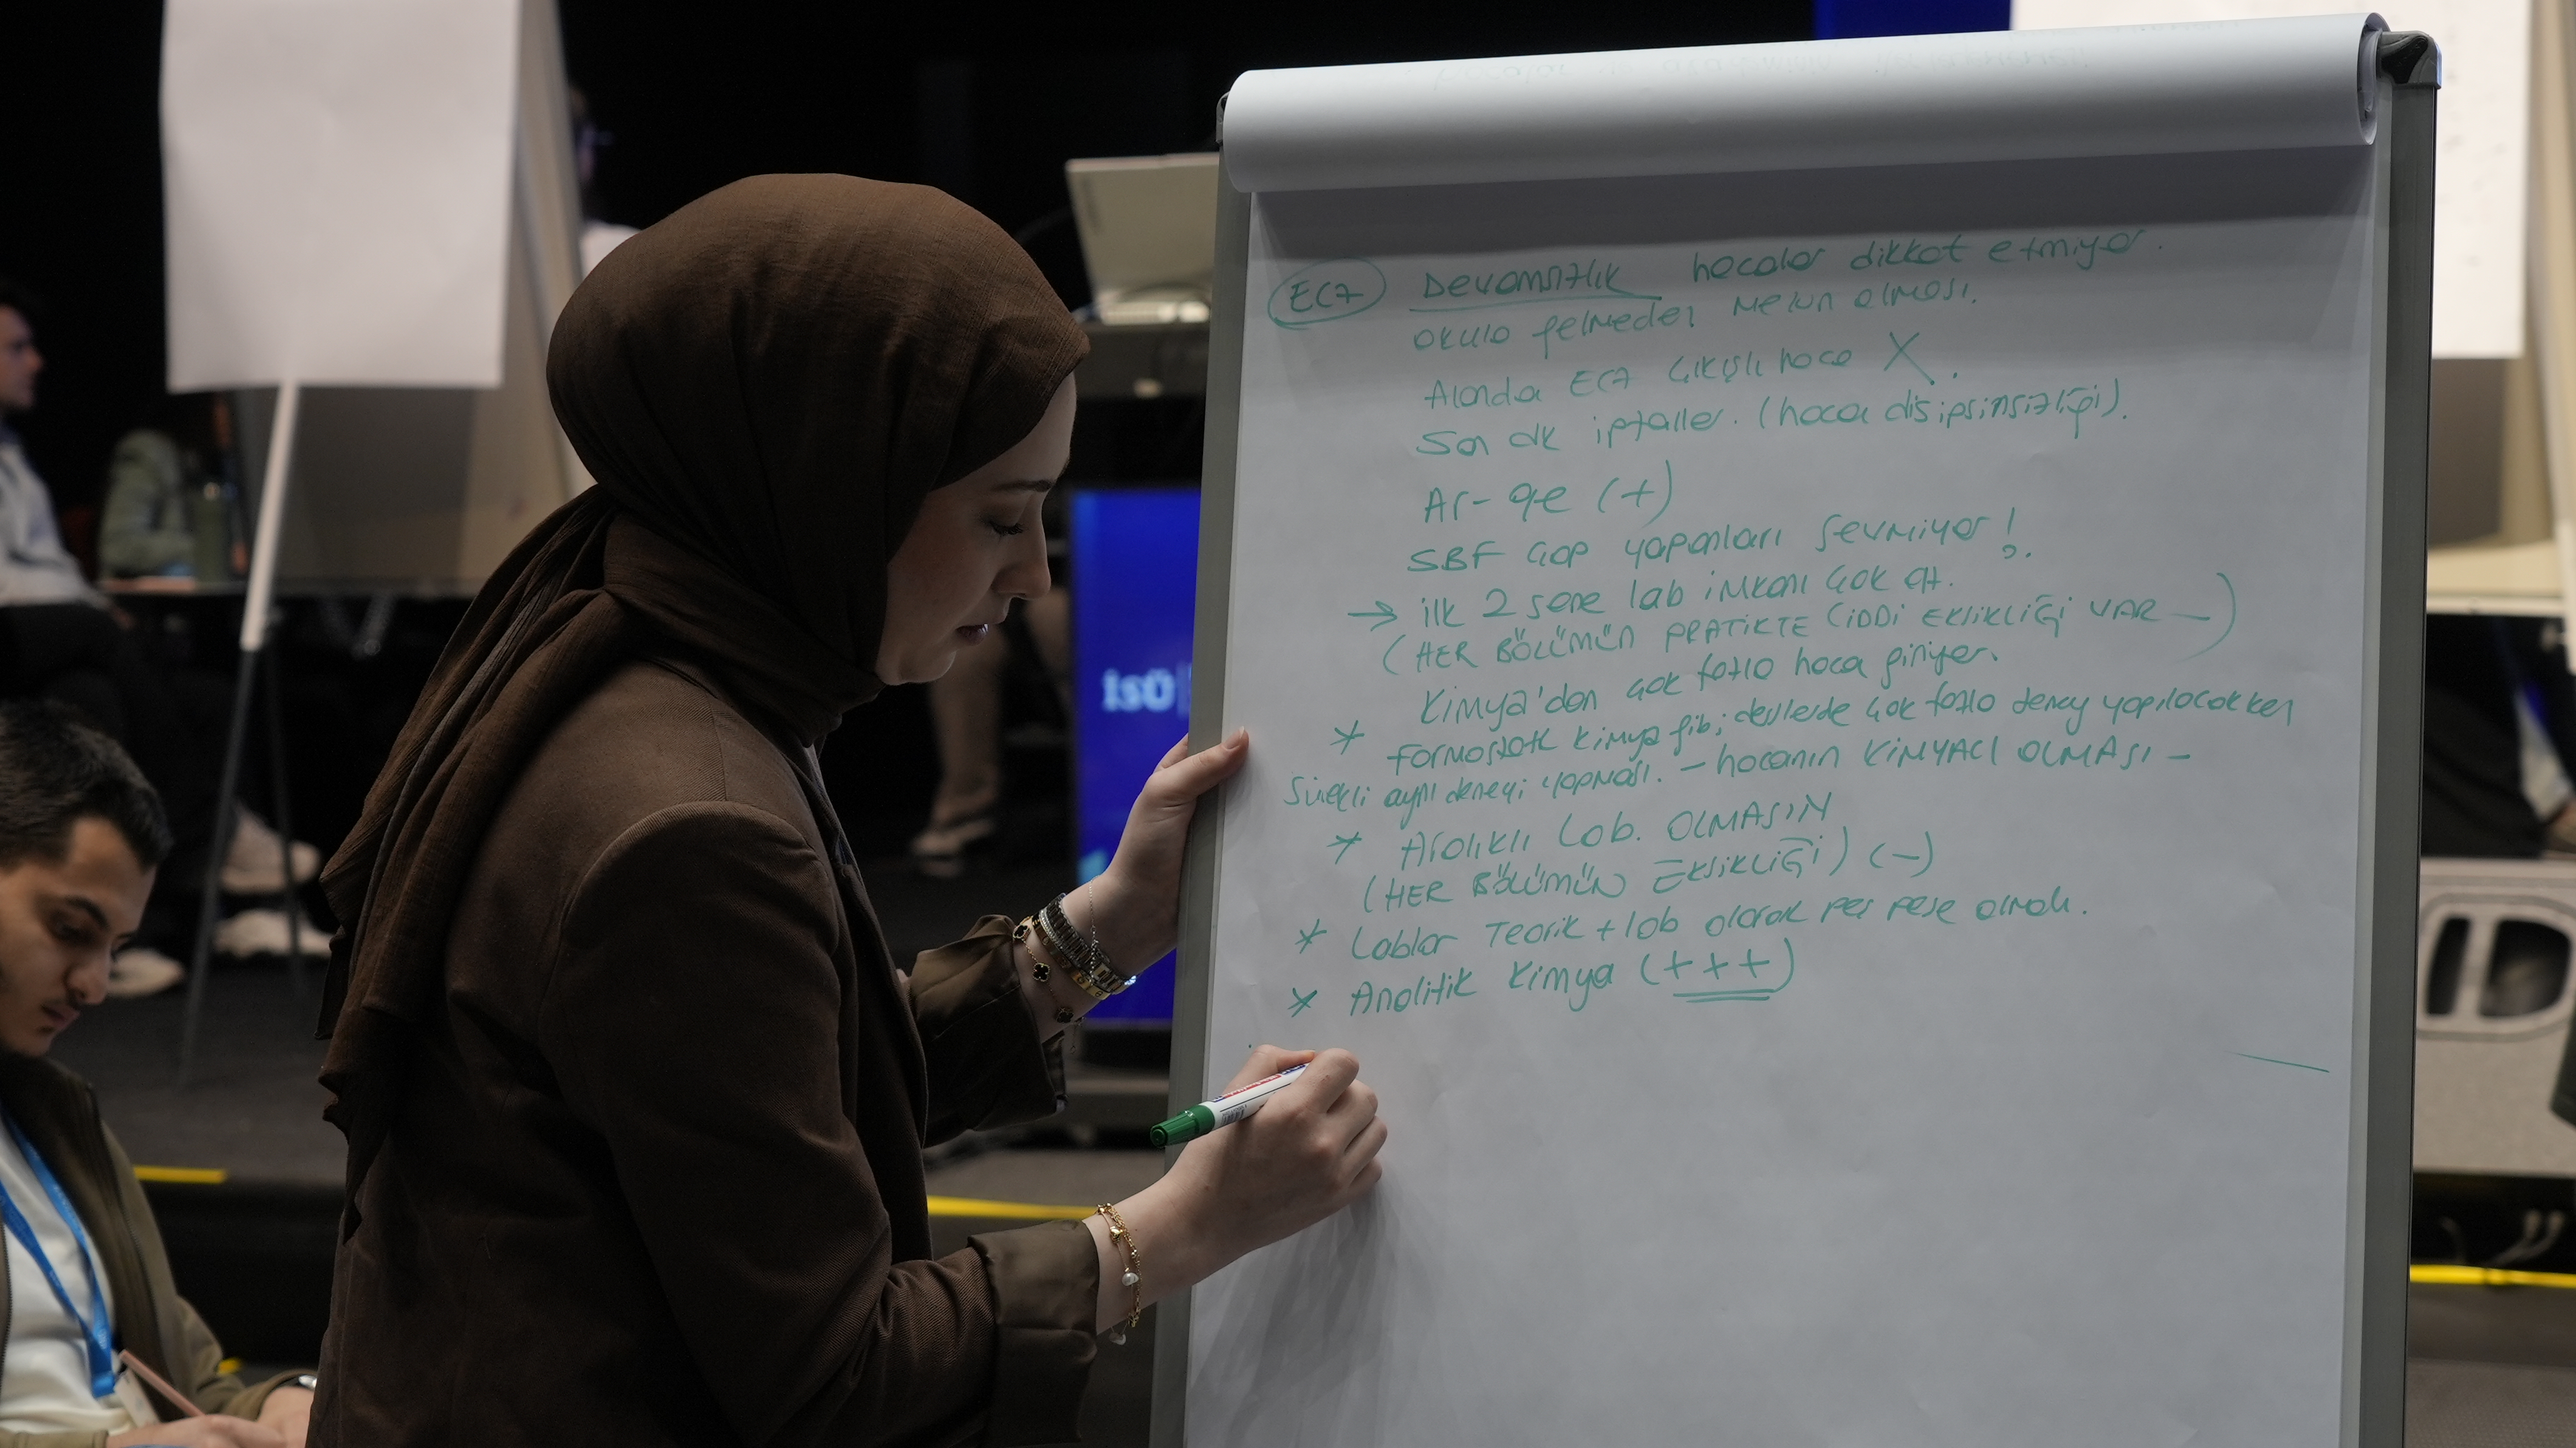 ECZ Devamsızlık hocalar dikkat etmiyor.
okula gelmeden mezun olması.
Alanda ECZ çıkışlı hoca X.
Son dk iptaller. (hoca disipsinsizliği).
Ar-ge (+)
SBF ÇAP yapanları sevmiyor!
→ ilk 2 sene lab imkanı çok az.
(HER BÖLÜMÜN PRATİKTE CİDDİ EKSİKLİĞİ VAR —)
Kimya'dan çok fazla hoca giriyor.
* Kimya gib; derslerde çok fazla deney yapılacakken
Sürekli aynı deneyi yapması. - hocanın KİMYACI OLMASI -
* Aralıklı Lab. OLMASIN
(HER BÖLÜMÜN EKSİKLİĞİ) (-)
* Lablar Teorik + lab olarak peş peşe olmalı.
* Analitik Kimya (+++)
isü